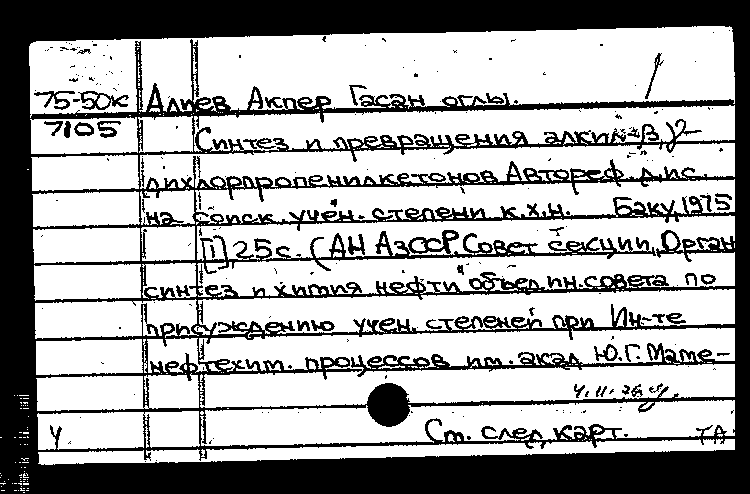 75-50к Алиев, Акпер Гасан оглы.
7105
Синтез и превращения алкил-β,γ-
дихлорпропенилкетонов. Автореф. дис.
на соиск. учен. степени к.х.н. Баку, 1975
[1], 25 с. (АН АзССР. Совет секции "Орган
синтез и химия нефти" объедин. совета по
присуждению учен. степеней при Ин-те
нефтехим. процессов им. акад Ю.Г. Маме-
Ч См. след. карт. ТА